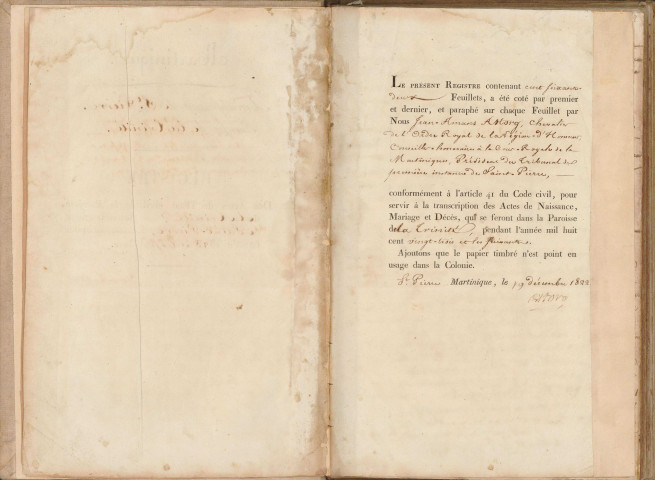 LE PRESENT REGISTRE contenant cent soixante
deux Feuillets, a été coté par premier
et dernier, et paraphé sur chaque Feuillet par
Nous Jean Amand Astorg, Chevalier
de l'Ordre Royal de la Légion d'Honneur
Conseiller honoraire à la Cour Royale de la
Martinique, Président du Tribunal de
première instance de Saint-Pierre, —
conformément à l'article 41 du Code civil, pour
servir à la transcription des Actes de Naissance,
Mariage et Décès, qui se feront dans la Paroisse
de la Trinité, pendant l'année mil huit
cent vingt-trois et les suivantes.
Ajoutons que le papier timbré n'est point en
usage dans la Colonie.
St. Pierre Martinique, le 19 décembre 1822